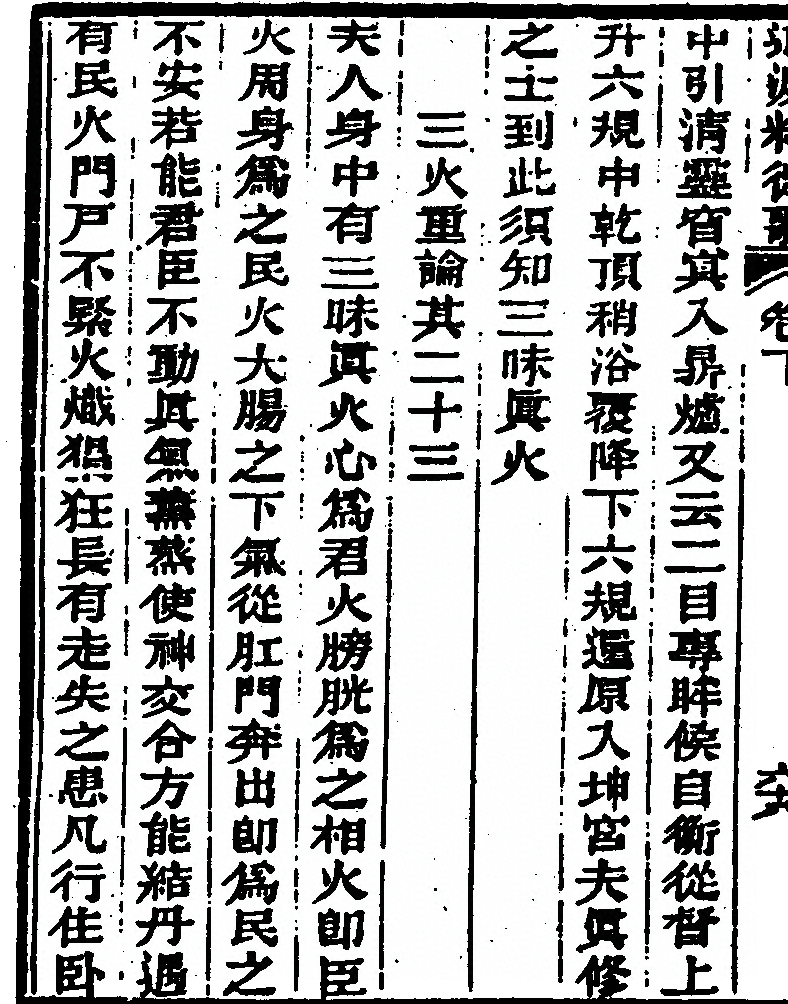 卷下
中引清靈宵寘入鼎爐又云二目專眸候自衝從督上
升六規中乾頂稍浴覆降下六規還原入坤宮夫眞修
之士到此須知三味眞火
三火重論其二十三
夫人身中有三味眞火心爲君火膀胱爲之相火卽臣
火周身爲之民火大腸之下氣從肛門奔出卽爲民之
不安若能君臣不動眞氣薰蒸使神交合方能結丹遇
有民火門戸不緊火熾猖狂長有走失之患凡行住卧